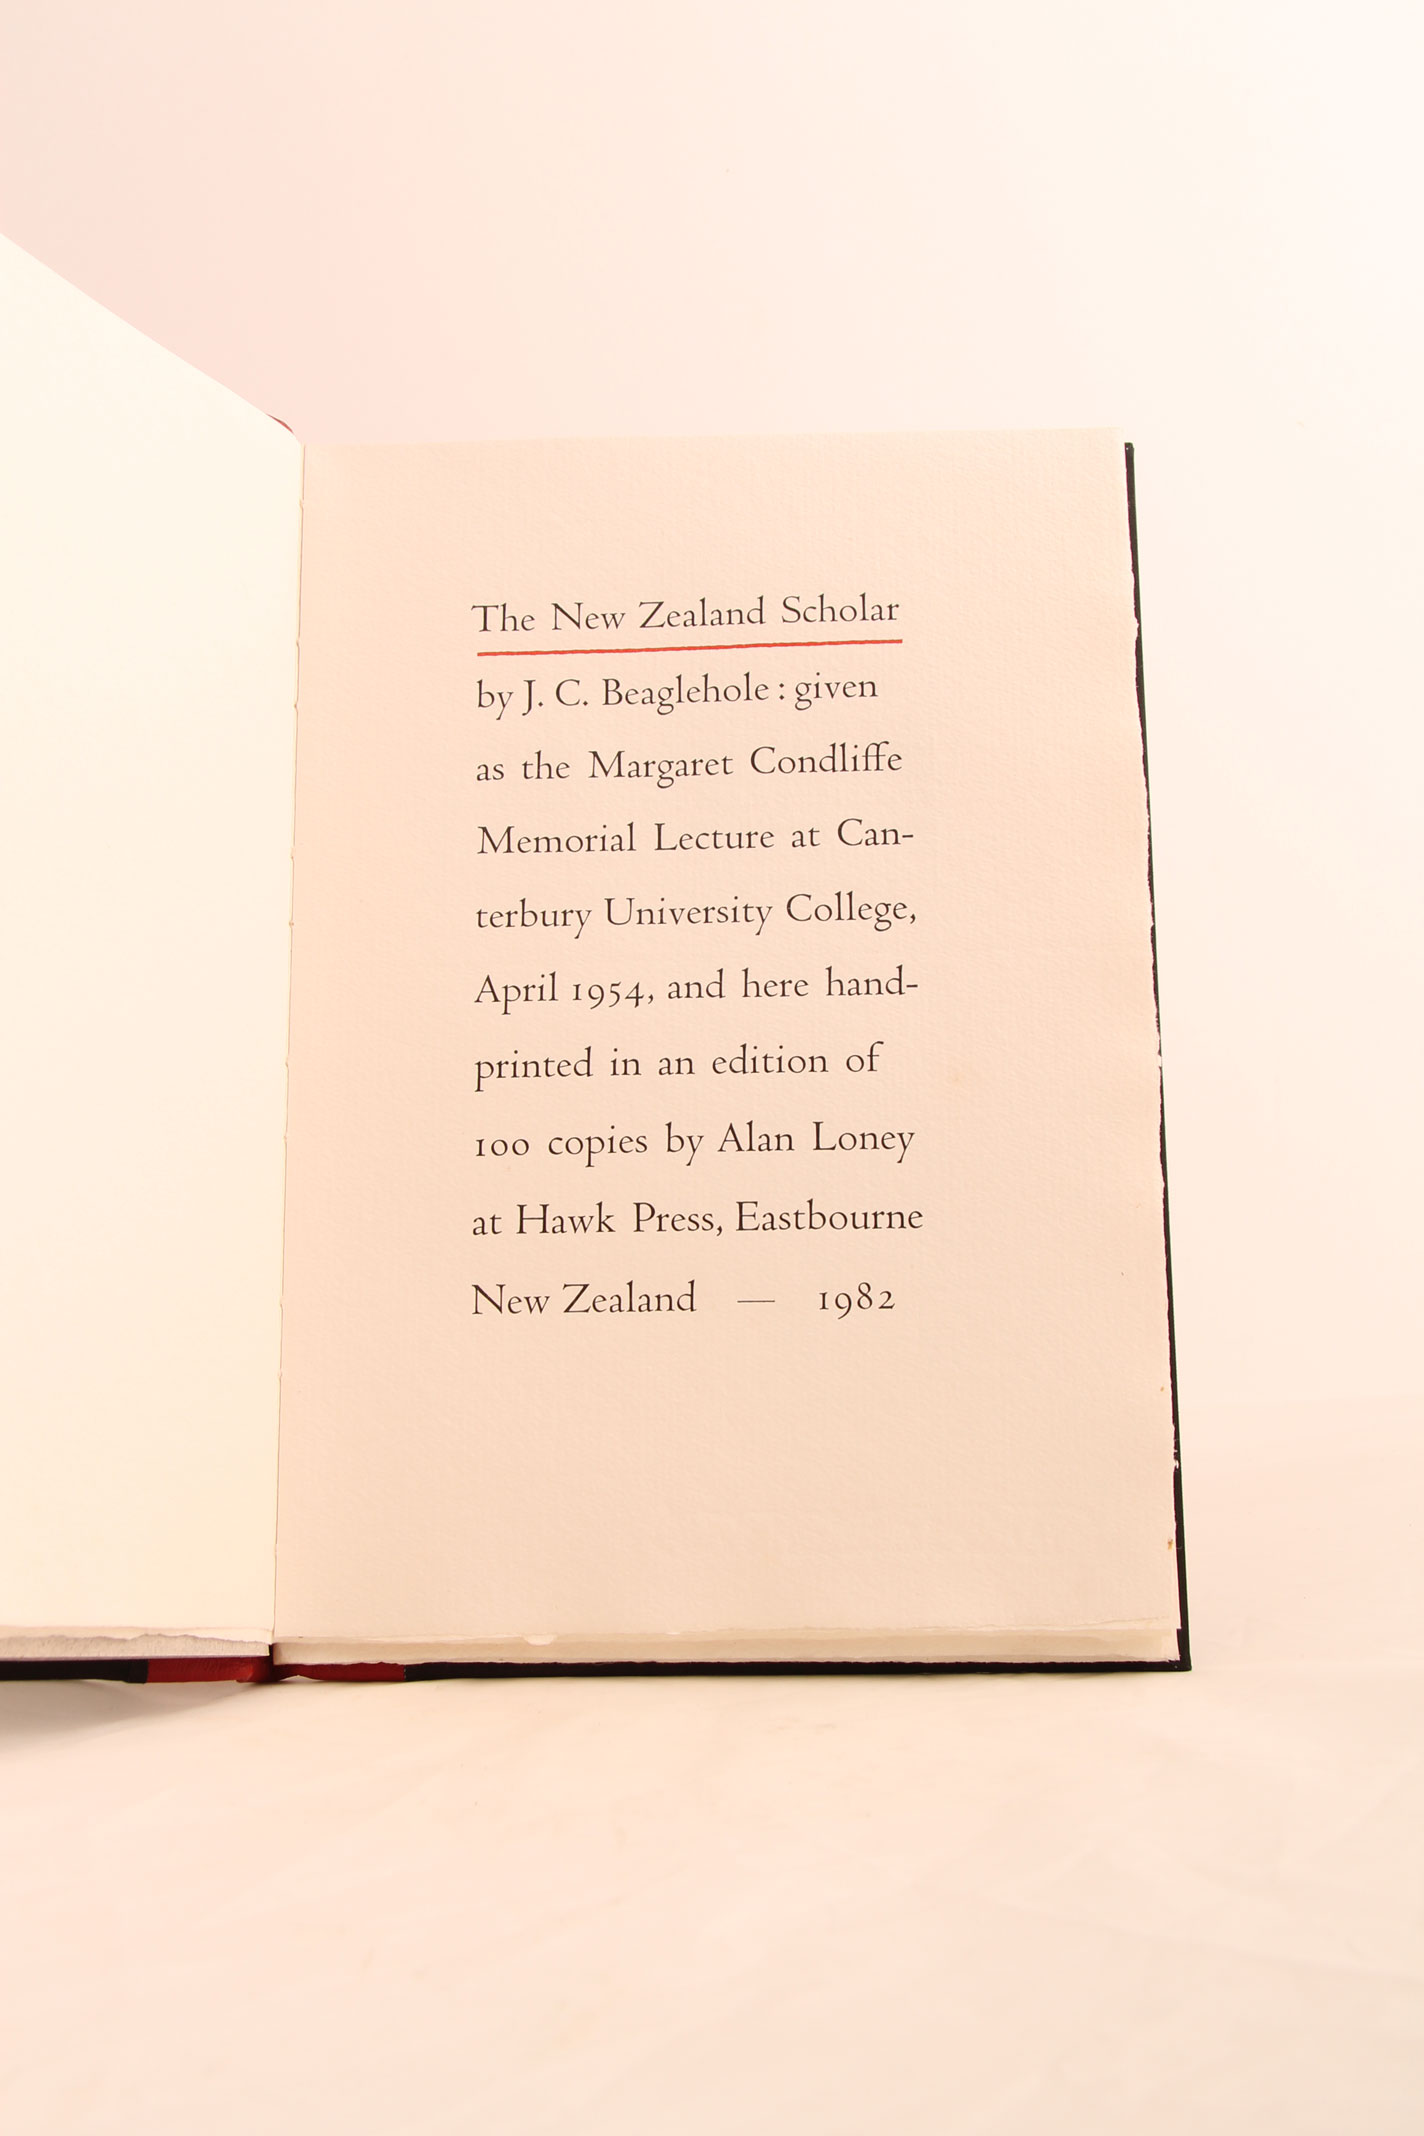 The New Zealand Scholar
by J. C. Beaglehole : given
as the Margaret Condliffe
Memorial Lecture at Can-
terbury University College,
April 1954, and here hand-
printed in an edition of
100 copies by Alan Loney
at Hawk Press, Eastbourne
New Zealand — 1982